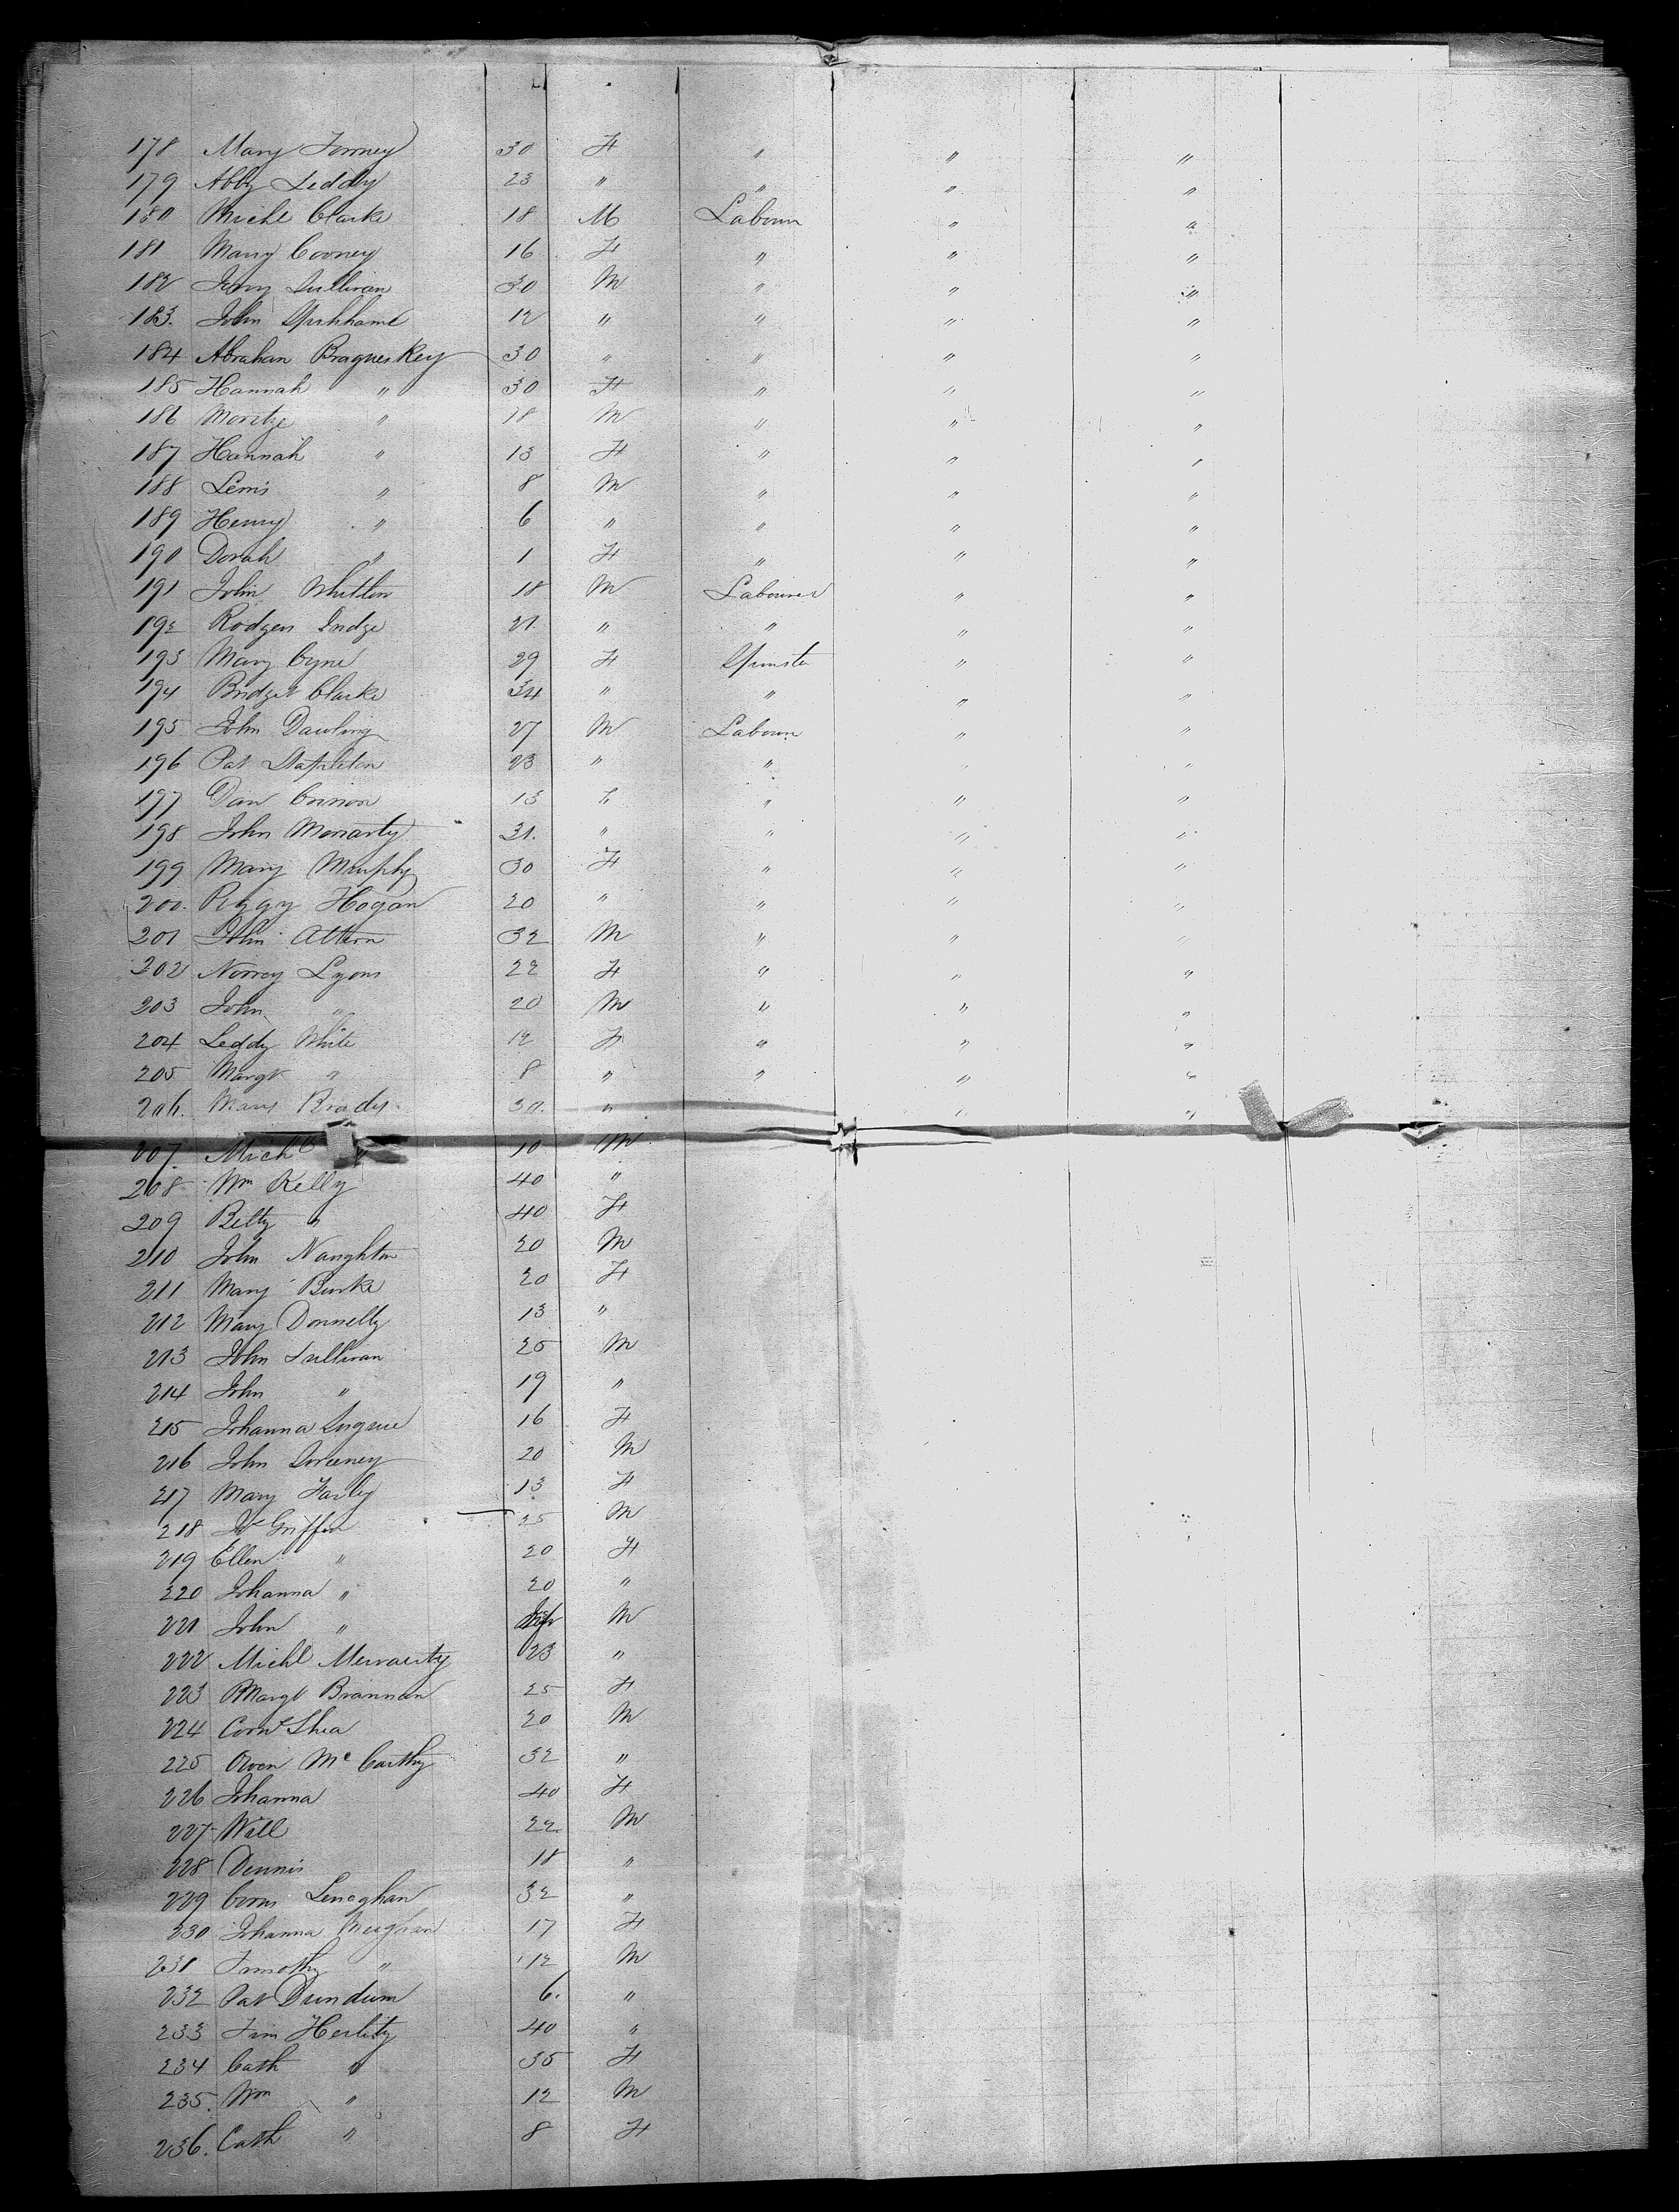 178 Mary Torney 30 F " " "
179 Abby Leddy 23 " " " "
180 Michl Clarke 18 M Labour " "
181 Mary Cooney 16 F " " "
182 Jerry Sullivan 30 M " " "
183. John 12 " " " "
184 Abraham Bragueskey 30 " " " "
185 Hannah " 30 F " " "
186 Moritze " 18 M " " "
187 Hannah " 13 F " " "
188 Lewis " 8 M " " "
189 Henry " 6 " " " "
190 Dorah " 1 F " " "
191 John Whitton 18 M Labourer " "
192 Rodger 21. " " " "
193 Mary Cyne 29 F Spinster " "
194 Bridget Clarke 34 " " " "
195 John Dawling 27 M Labour " "
196 Pat Stapleton 23 " " " "
197 Dan Connor 13 " " "
198 John Moriarty 31. " " " "
199 Mary Murphy 30 F " " "
200. Peggy Hogan 20 " " " "
201 John Attern 32 M " " "
202 Norrey Lyons 22 F " " "
203 John " 20 M " " "
204 Leddy White 12 F " " "
205 Margt " 8 " " " "
206. Mary Brady 30. " " "
207. Michl " 10 M
208 Wm Kelly 40 "
209 Betty " 40 F
210 John Naughton 20 M
211 Mary Burke 20 F
212 Mary Donnelly 13 "
213 John Sullivan 25 M
214 John " 19 "
215 Johanna 16 F
216 John Sweeney 20 M
217 Mary Farley 13 F
218 Griffin 25 M
219 Ellen " 20 F
220 Johanna " 20 "
221 John " M
222 Michl Merraurty 23 "
223 Margt Brannan 25 F
224 Corns Shea 20 M
225 Owen Mc Carthy 32 "
226 Johanna 40 F
227 Will 22 M
228 Dennis 18 "
229 Corns Lenaghan 32 "
230 Johanna Meighan 17 F
231 Timothy " 12 M
232 Pat Dundum 6. "
233 Tim Herlity 40 "
234 Cath " 35 F
235. Wm " 12 M
236. Cath " 8 F